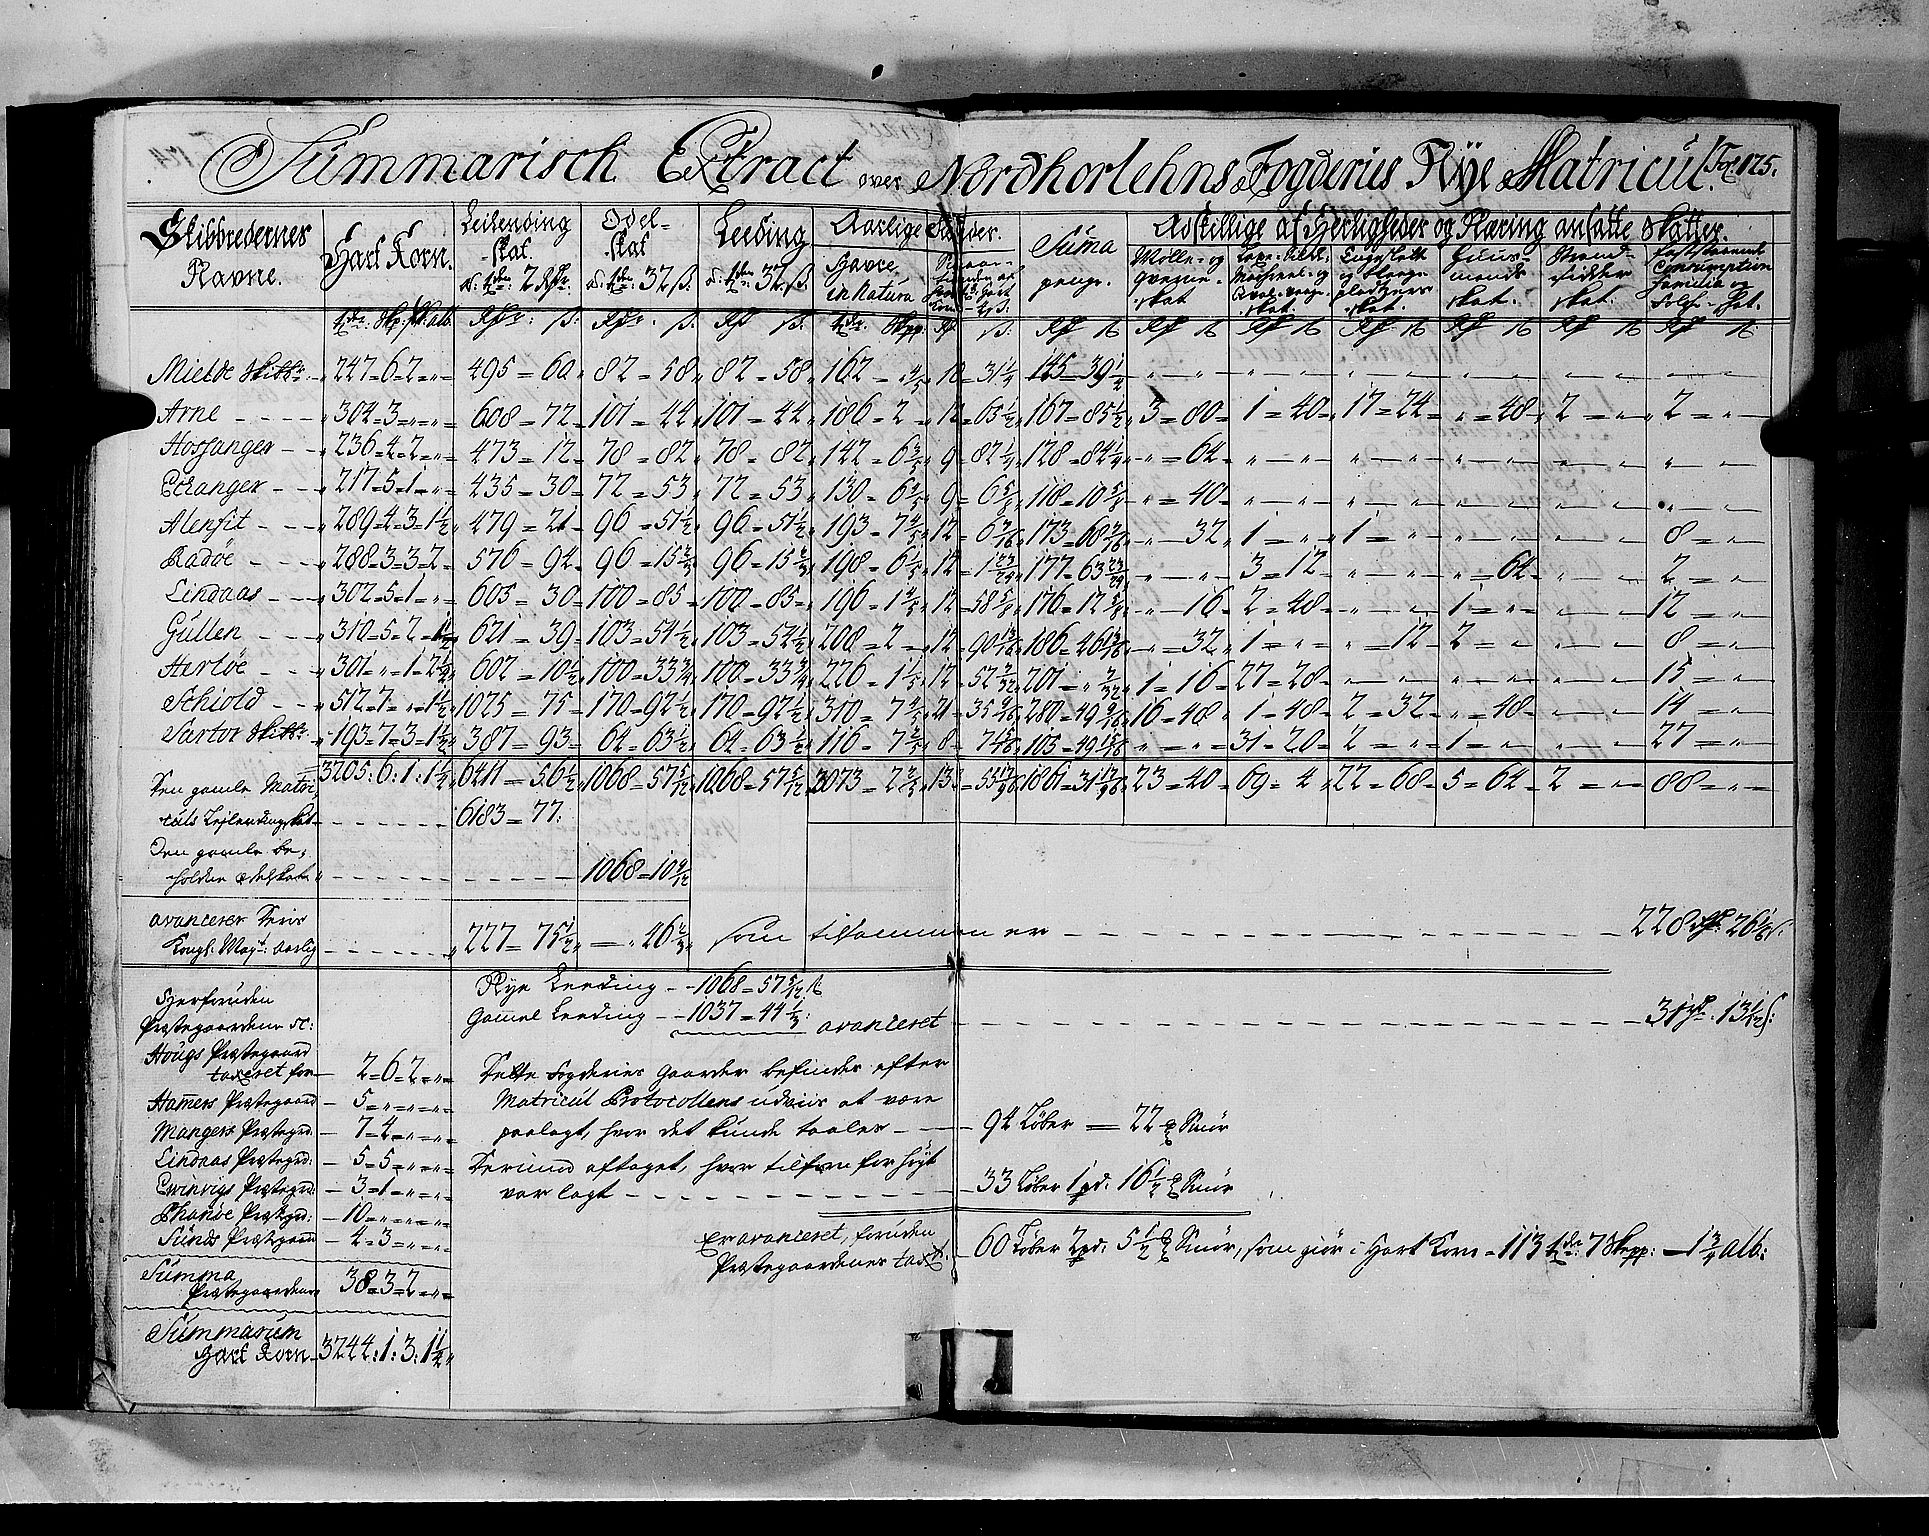 Summarisch Extract over Nordhorlehns Fogderies Nÿe Matricul. Fol: 175.
Skibbredernes Navne. | Hart Korn. | Leilending skat. á tde 2 Rdr: | Odel- skat á tde 32 s. | Leeding á tde 32 s. | Aarlige Tiender. Havre in Natura | Suma penge. | Adskillige af Herligheder og Næring ansatte Skatter. Mølle- og qverne- skat | skat. | skat. | Huus- mends skat. | Strand- sidder skat. | Consumption Familie og Folke-skat.
tdr: Skp: alb. | Rdr: s: | Rdr: s. | Rd s. | tdr: Skpp | Rd s. | Rd s | Rd s | Rd s | Rd s | Rd s | Rd s | Rd s
Mielde Skibbr. 247=6=2=„= 495=60 82=58 82=58 162=„4/5 10=31 1/4 145=39 1/4 „—„— „—„— „—„— „—„— „—„— „—„—
Arne 304=3=„=„= 608=72 101=44 101=44 186=2 12=63 1/2 167=85 1/2 3=80 1=40 17=24 „=48 2=„ 2=„
Hosanger 236=4=2=„= 473=12 78=82 78=82 142=6 3/5 9=82 1/4 128=84 1/4 „=64 „—„— „—„— „—„— „—„— „—„—
Echanger 217=5=1=„= 435=30 72=53 72=53 130=6 2/5 9=6 5/8 118=10 5/8 „=40 „—„— „—„— „—„— „—„— „—„—
Alenfit 289=4=3=1 1/2 479=21 96=51 1/2 96=51 1/2 193=7 2/5 12=6 3/16 173=60 3/16 „—32 1=„ 1=„ „—„— „—„— 8=„
Radøe 288=3=3=2 576=94 96=15 2/3 96=15 2/3 198=6 1/5 12=1 23/24 177=63 23/24 „—„— 3=12 „—„— „=64 „—„— 2=„
Lindaas 302=5=1=„= 605=30 100=85 100=85 196=1 4/5 12=58 5/8 176=12 5/8 „—16 2=48 „—„— 1=„ „—„— 12=„
Gullen 310=5=2=1 1/2 621=39 103=54 1/2 103=54 1/2 208=2 12=90 13/16 186=46 13/16 „—32 1=„ „=12 2=„ „—„— 8=„
Herløe 301=„=1=2 1/4 602=10 1/2 100=33 3/4 100=33 3/4 226=1 1/5 12=52 3/32 201=„ 3/32 1=16 27=28 „—„— „—„— „—„— 15=„
Schiold 512=7=„=1 1/2 1025=75 170=92 1/2 170=92 1/2 310=7 2/5 21=35 9/16 280=49 9/16 16=48 1=48 2=32 „=48 „—„— 14=„
Sartor Skibbr. 193=7=3=1 1/2 387=93 64=63 1/2 64=63 1/2 116=7 2/5 8=7 15/16 103=49 15/16 „=„ 31=20 2=„ 1=„ „—„— 27=„
3205:6:1:1 1/2 6411=56 1/2 1068=57 5/12 1068=57 5/12 2073=2 2/5 1861=31 23=40 69=4 22=68 5=64 2=„ 88=„
Den gamle Matri-
culs Leilendingskat 6183=77:
Den gamle be-
holdne odelskat 1068=10 9/12
avancerer Deris
Kongl: Mayt: aarlig 227=75 1/2 —„46 2/3 som tilsammen er 228 Rd: 26 1/6 s.
Nye Leeding 1068=57 5/12 s
Gamel Leeding 1037=44 1/3: avanceret 31 rd. 13 1/12 s:
Herforuden
Præstegaardene sc:
Hougs Præstegaard
taxeret for 2=6=2=„=
Hamers Præstegaard 5=„=„=„=
Mangers Præstegrd: 7=4=„=„=
Lindaas Præstegrd: 5=5=„=„=
Evinvigs Præstegrd: 3=1=„=„=
Phanøe Præstegrd: 10=„=„=„=
Sunds Præstegaard 4=3=„=„=
Summa
Præstegaardene 38=3=2=„=
Summarum
Hart Korn 3244:1:3:1 1/2
Dette Fogderies Gaarder befindes efter
Matricul Protocollens udviis at være
paalagt, hvor det kunde taales 94 Løber = 22 Smør
Derimod aftaget, hvor tilforn for høyt
var lagt 33 Løber 1 pd: 16 1/2 Smør
Er avanceret, foruden
Præstegaardenes taxt: 60 Løber 2 pd: 5 1/2 Smør, som giør i Hart Korn 113 tdr: 7 Skpp: — 1 3/4 alb: